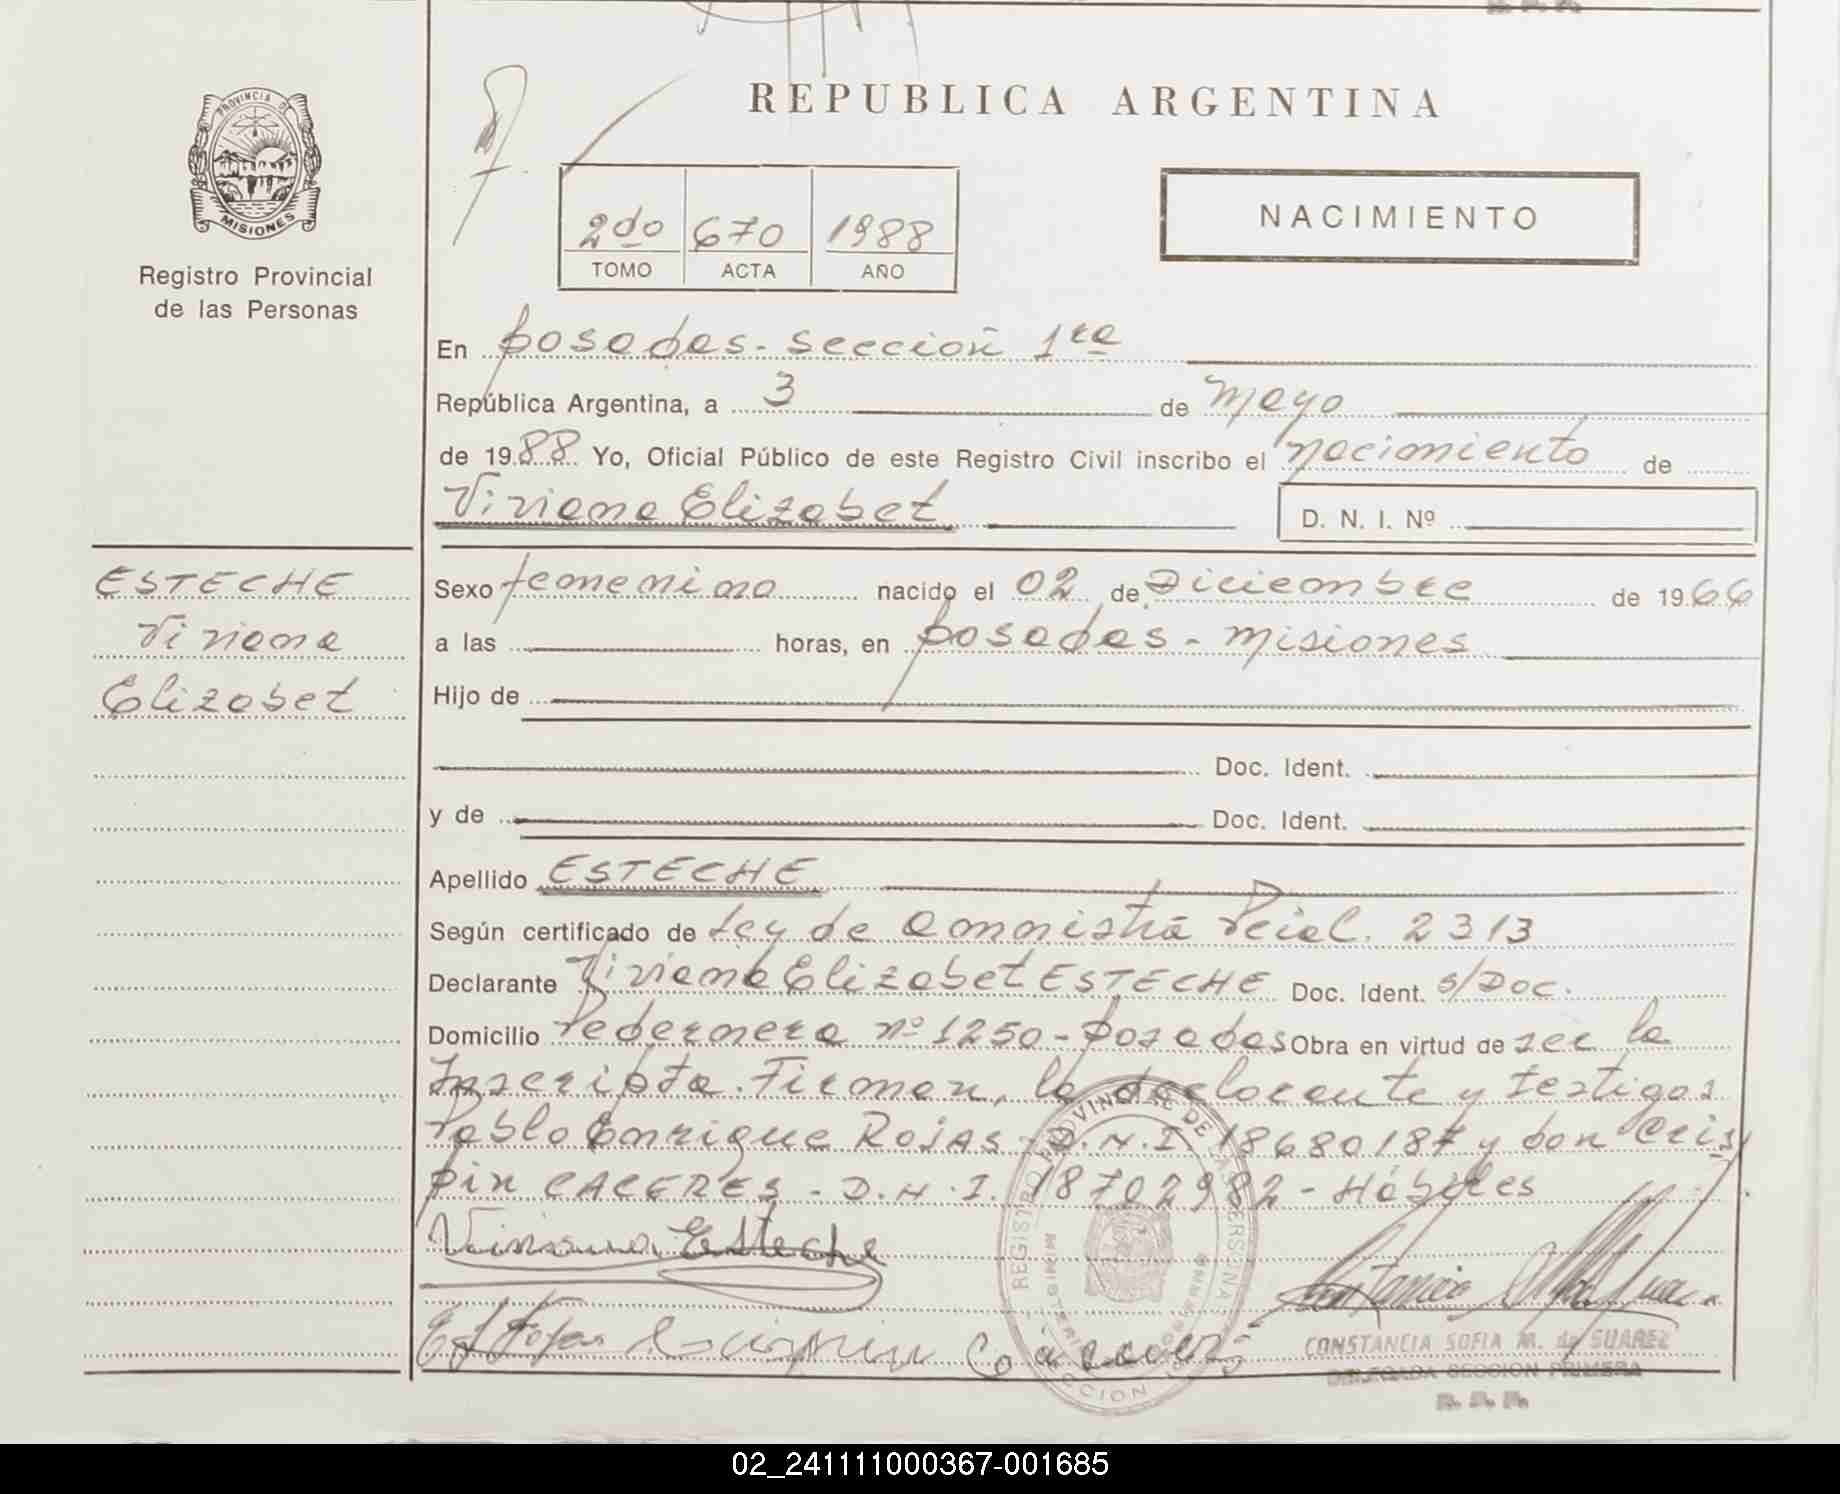 REPUBLICA ARGENTINA
PROVINCIA DE
MISIONES
Registro Provincial
de las Personas
2do 670 1988
TOMO ACTA AÑO
NACIMIENTO
En Posadas - Sección 1ra
República Argentina, a 3 de Mayo
de 1988 Yo, Oficial Público de este Registro Civil inscribo el Nacimiento de
Viviana Elizabet D. N. I. Nº
ESTECHE
Viviana
Elizabet
Sexo femenino nacido el 02 de Diciembre de 1966
a las horas, en Posadas - Misiones
Hijo de
Doc. Ident.
y de Doc. Ident.
Apellido ESTECHE
Según certificado de Ley de Amnistía Pcial. 2313
Declarante Viviana Elizabet ESTECHE Doc. Ident. s/Doc.
Domicilio Pedernera nº 1250 - Posadas Obra en virtud de ser la
Inscripta. Firman, la declarante y testigos
Pablo Enrique ROJAS - D.N.I. 18680187 y don Cris
pin CACERES - D.N.I. 18702982 - Hábiles
REGISTRO PROVINCIAL DE LAS PERSONAS
Viviana Esteche
CONSTANCIA SOFIA M. de SUAREZ
DELEGADA SECCION PRIMERA
R. P. P.
02_241111000367-001685